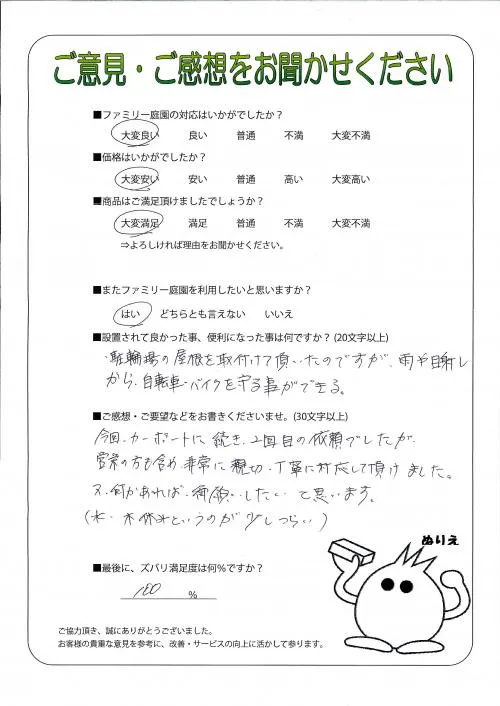 ご意見・ご感想をお聞かせください
■ファミリー庭園の対応はいかがでしたか？
大変良い 良い 普通 不満 大変不満
■価格はいかがでしたか？
大変安い 安い 普通 高い 大変高い
■商品はご満足頂けましたでしょうか？
大変満足 満足 普通 不満 大変不満
⇒よろしければ理由をお聞かせください。
■またファミリー庭園を利用したいと思いますか？
はい どちらとも言えない いいえ
■設置されて良かった事、便利になった事は何ですか？(20文字以上)
・駐輪場の屋根を取付けて頂いたのですが、雨や日射し
から、自転車・バイクを守る事ができる。
■ご感想・ご要望などをお書きくださいませ。(30文字以上)
今回、カーポートに続き、2回目の依頼でしたが、
営業の方も含め、非常に親切・丁寧に対応して頂けました。
又、何かあれば、御願いしたいと思います。
(水・木休みというのが少しつらい)
ぬりえ
■最後に、ズバリ満足度は何％ですか？
100 %
ご協力頂き、誠にありがとうございました。
お客様の貴重な意見を参考に、改善・サービスの向上に活かして参ります。